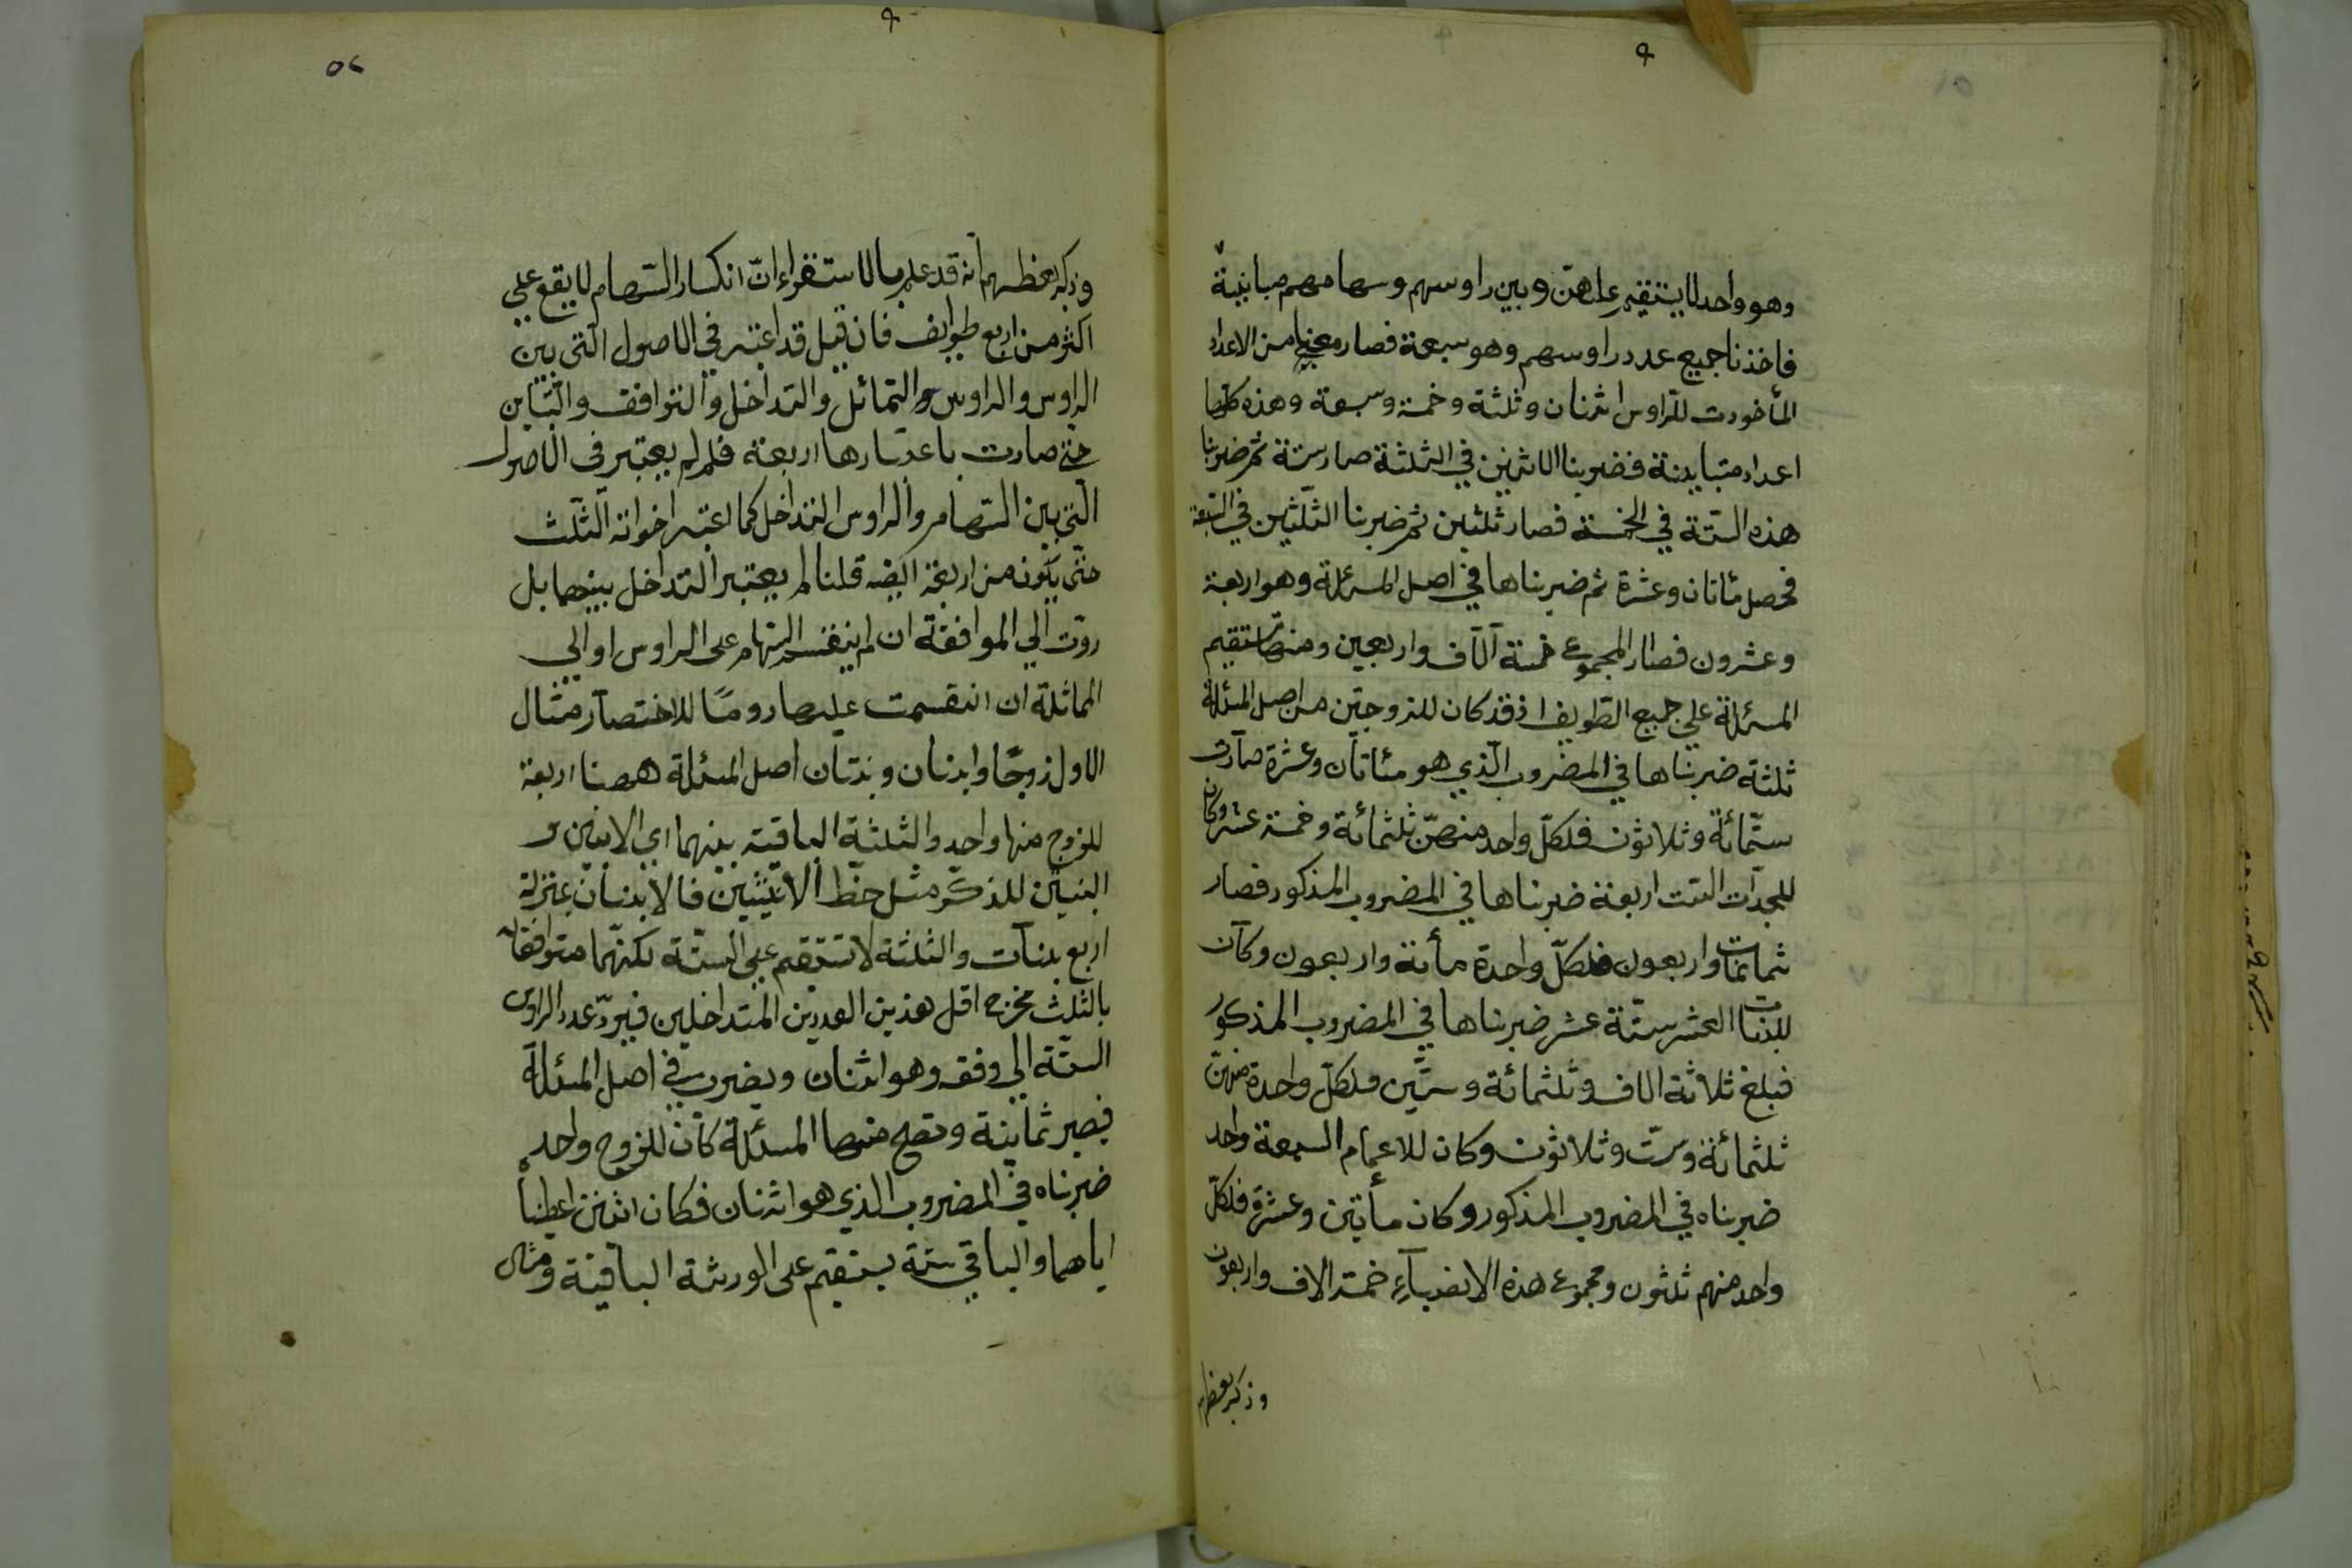 وهو واحد لا يستقيم علهنّ وبين راوسهم وسهامهم مباينة
فاخذنا جميع عدد راوسهم وهو سبعة فصار معنا من الاعداد
المأخوذت للرّاوس اثنان وثلثة وخمسة وسبعة وهذه كلّها
اعداد متباينة فضربنا الاثنين في الثلثة صار ستة ثم ضربنا
هذه الستّة في الخمسة فصار ثلثين ثم ضربنا الثّلثين في السّبعة
فحصل مائتان وعشرة ثم ضربناها في اصل المسئلة وهو اربعة
وعشرون فصار المجموع خمسة آلآف واربعين ومنها تستقيم
المسئلة علي جميع الطّوايف اذ قد كان للزوجتين من اصل المسئلة
ثلثة ضربناها في المضروب الّذي هو مئاتان وعشرة صارت
ستّمائة وثلاثون فلكلّ واحد منهنّ ثلثمائة وخمسة عشر وكان
للجدّات الستّ اربعة ضربناها في المضروب المذكور فصار
ثمانمات واربعون فلكلّ واحدة مأئة واربعون وكان
للبنات العشر ستّة عشر ضربناها في المضروب المذكور
فبلغ ثلاثة الاف وثلثمائة وستّين فلكلّ واحدة منهنّ
ثلثمائة وستّ وثلاثون وكان للاعمام السبعة واحد
ضربناه في المضروب المذكور وكان مأيتين وعشرة فلكلّ
واحد منهم ثلثون ومجموع هذه الانصباء خمسة الاف واربعون
وذكر بعظهم
٥٢
وذكر بعظهم انه قد علم بالاستقراء انّ انكسار السّهام لا يقع علي
اكثر من اربع طوايف فان قيل قد اعتبر في الاصول الّتي بين
الراوس والراوس والتماثل والتداخل والتوافق والتّباين
حتّي صارت باعتبارها اربعة فلم لم يعتبر في الاصول
الّتي بين السّهام والراوس التداخل كما اعتبر اخواته الثّلث
حتّى يكون من اربعة ايضه قلنا لم يعتبر التداخل بينهما بل
ردّت الي الموافقة ان لم ينقسم السّهام على الراوس او الي
المماثلة ان انقسمت عليها روما للاختصار مثال
الاول زوجًا وابنان وبنتان اصل المسئلة ههنا اربعة
للزوج منها واحد والثلثة الباقية بينهما اي الابنين و
البنتين للذكر مثل حظّ الانثيين فالابنان بمنزلة
اربع بنات والثلثة لا تستقيم علي الستّة لكنّهما متوافقان
بالثلث مخرج اقل هذين العددين المتداخلين فيردّ عدد الراوس
الستّة الي وفقه وهو اثنان ويضرب في اصل المسئلة
فيصير ثمانية وتصح منها المسئلة كان للزوج واحد
ضربناه في المضروب الذي هو اثنان فكان اثنين اعطينا
اياهما والباقي ستة يستقيم على الورثة الباقية ومثال